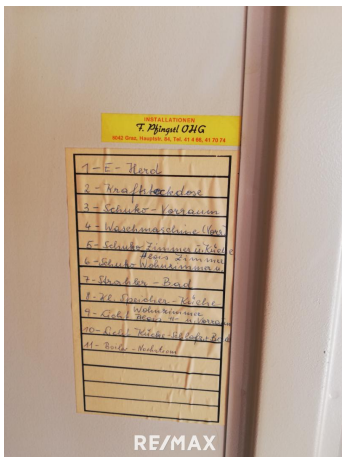 INSTALLATIONEN
F. Pfingstl OHG
8042 Graz, Hauptstr. 84, Tel. 41 4 86, 41 70 74
1 - E - Herd
2 - Kraftsteckdose
3 - Schuko - Vorraum
4 - Waschmaschine (Vorr)
5 - Schuko - Zimmer u. Küche
kleines Zimmer
6 - Schuko - Wohnzimmer u.
7 - Strahler - Bad
8 - Kl. Speicher - Küche
Wohnzimmer
9 - Licht - u. Vorraum
10 - Licht Küche - Schlafz - Bad
11 - Boiler - Nachtstrom
RE/MAX